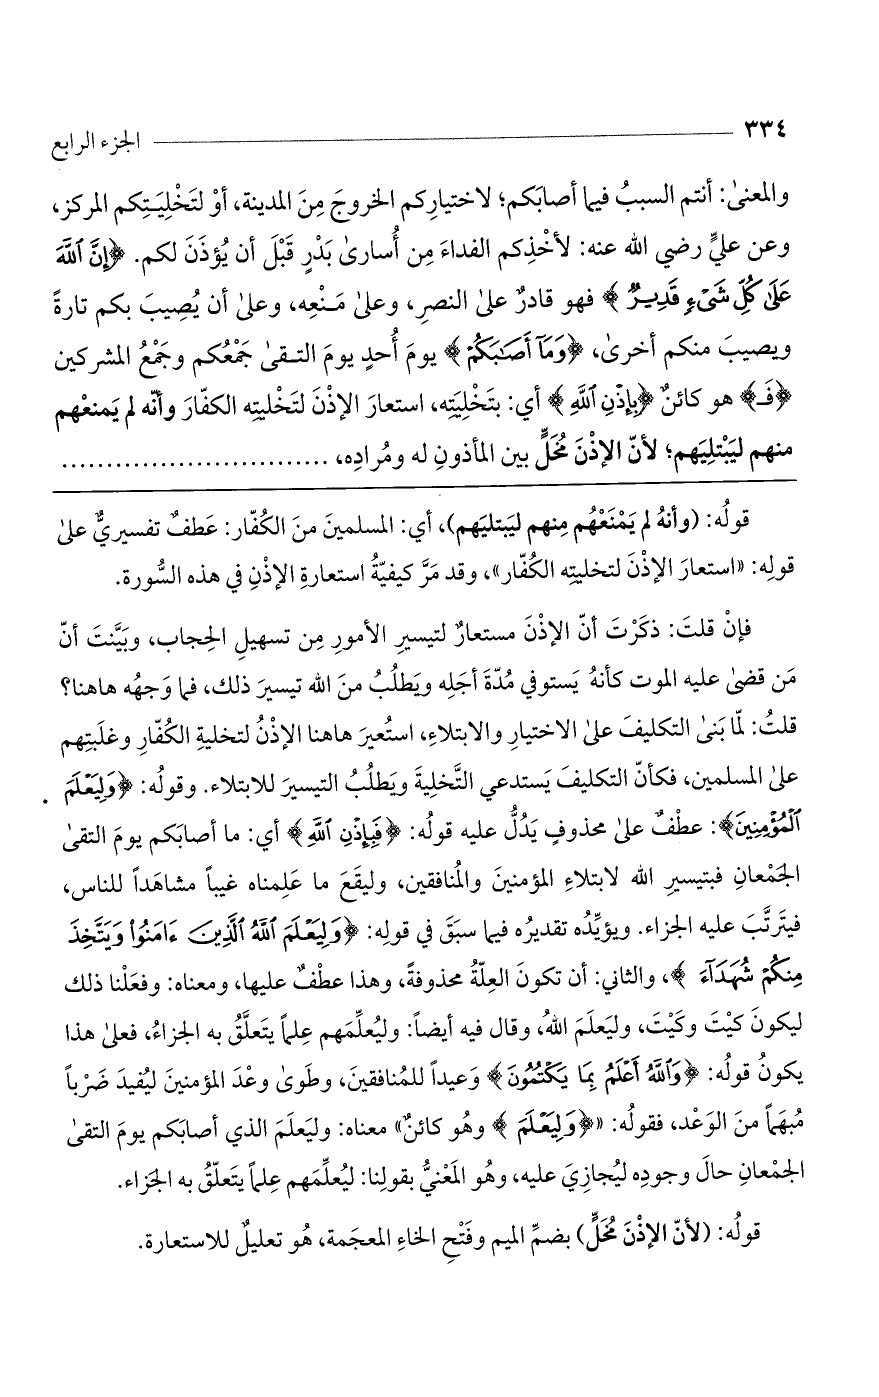 ٣٣٤ الجزء الرابع
والمعنىٰ: أنتم السببُ فيما أصابَكم؛ لاختيارِكم الخروجَ مِنَ المدينة، أوْ لتَخْلِيَـتِكم المركز،
وعن عليٍّ رضي الله عنه: لأخْذِكم الفداءَ مِن أُسارىٰ بَدْرٍ قَبْلَ أن يُؤذَنَ لكم. ﴿إِنَّ ٱللَّهَ
عَلَىٰ كُلِّ شَىْءٍ قَدِيرٌ﴾ فهو قادرٌ علىٰ النصرِ، وعلىٰ مَـنْعِه، وعلىٰ أن يُصِيبَ بكم تارةً
ويصيبَ منكم أخرىٰ، ﴿وَمَآ أَصَـٰبَكُمْ﴾ يومَ أُحدٍ يومَ التـقىٰ جَمْعُكم وجَمْعُ المشركين
﴿فَـ﴾ هو كائنٌ ﴿بِإِذْنِ ٱللَّهِ﴾ أي: بتَخْلِيَتِه، استعارَ الإذْنَ لتَخْليتِه الكفّارَ وأنّه لم يَمنعْهم
منهم ليَبْتلِيَهم؛ لأنّ الإذْنَ مُخَلٍّ بين المأذونِ له ومُرادِه، ..............................
قولُه: (وأنهُ لم يَمْنَعْهُم مِنهم ليَبتليَهم)، أي: المسلمينَ منَ الكُفّار: عَطفٌ تفسيريٌّ علىٰ
قولِه: «استعارَ الإذْنَ لتخليتِه الكفّار»، وقد مَرَّ كيفيّةُ استعارةِ الإذْنِ في هذه السُّورة.
فإنْ قلتَ: ذكَرْتَ أنّ الإذْنَ مستعارٌ لتيسيرِ الأمورِ مِن تسهيلِ الحِجاب، وبَيَّنتَ أنّ
مَن قضىٰ عليه الموت كأنهُ يَستوفي مُدّةَ أجَلِه ويَطلُبُ منَ الله تيسيرَ ذلك، فما وَجهُه هاهنا؟
قلتُ: لمّا بَنىٰ التكليفَ علىٰ الاختيارِ والابتلاءِ، استُعيرَ هاهنا الإذْنُ لتخليةِ الكُفّارِ وغلَبتِهم
علىٰ المسلمين، فكأنّ التكليفَ يَستدعي التَّخليةَ ويَطلُبُ التيسيرَ للابتلاء. وقولُه: ﴿وَلِيَعْلَمَ
ٱلْمُؤْمِنِينَ﴾: عطْفٌ علىٰ محذوفٍ يَدُلُّ عليه قولُه: ﴿فَبِإِذْنِ ٱللَّهِ﴾ أي: ما أصابَكم يومَ التقىٰ
الجَمْعانِ فبتيسيرِ الله لابتلاءِ المؤمنينَ والمُنافقين، وليقَعَ ما عَلِمناه غيباً مشاهَداً للناس،
فيترتَّبَ عليه الجزاء. ويؤيِّدُه تقديرُه فيما سبَقَ في قولِه: ﴿وَلِيَعْلَمَ ٱللَّهُ ٱلَّذِينَ ءَامَنُواْ وَيَتَّخِذَ
مِنكُمْ شُهَدَآءَ﴾، والثاني: أن تكونَ العِلّةُ محذوفةً، وهذا عطْفٌ عليها، ومعناه: وفعَلْنا ذلك
ليكونَ كيْتَ وكَيْتَ، وليَعلَمَ اللهُ، وقال فيه أيضاً: وليُعلِّمَهم عِلماً يَتعلَّقُ به الجزاءُ، فعلىٰ هذا
يكونُ قولُه: ﴿وَٱللَّهُ أَعْلَمُ بِمَا يَكْتُمُونَ﴾ وَعيداً للمُنافقين، وطَوىٰ وعْدَ المؤمنينَ ليُفيدَ ضَرْباً
مُبهَماً منَ الوَعْد، فقولُه: «﴿وَلِيَعْلَمَ﴾ وهُو كائنٌ» معناه: وليَعلَمَ الذي أصابَكم يومَ التقىٰ
الجمْعانِ حالَ وجودِه ليُجازِيَ عليه، وهُو المَعْنيُّ بقولِنا: ليُعلِّمَهم عِلماً يَتعلّقُ به الجَزاء.
قولُه: (لأنّ الإذْنَ مُخَلٍّ) بضمِّ الميم وفَتْحِ الخاءِ المعجَمة، هُو تعليلٌ للاستعارة.